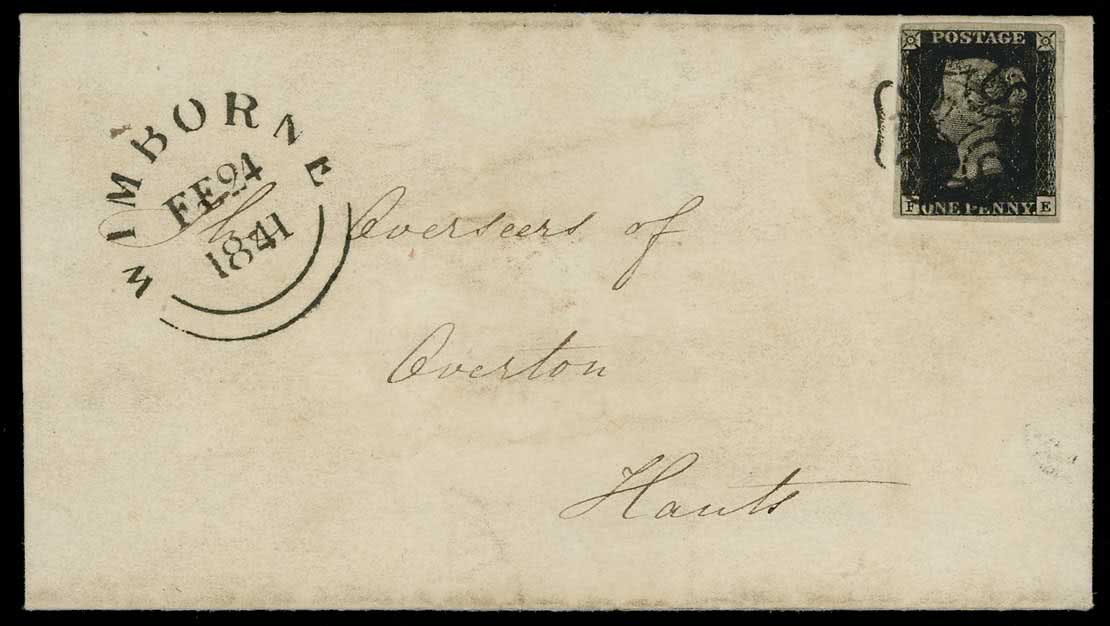 WIMBORNE
FE 24
1841
POSTAGE
F ONE PENNY E
The Overseers of
Overton
Hants